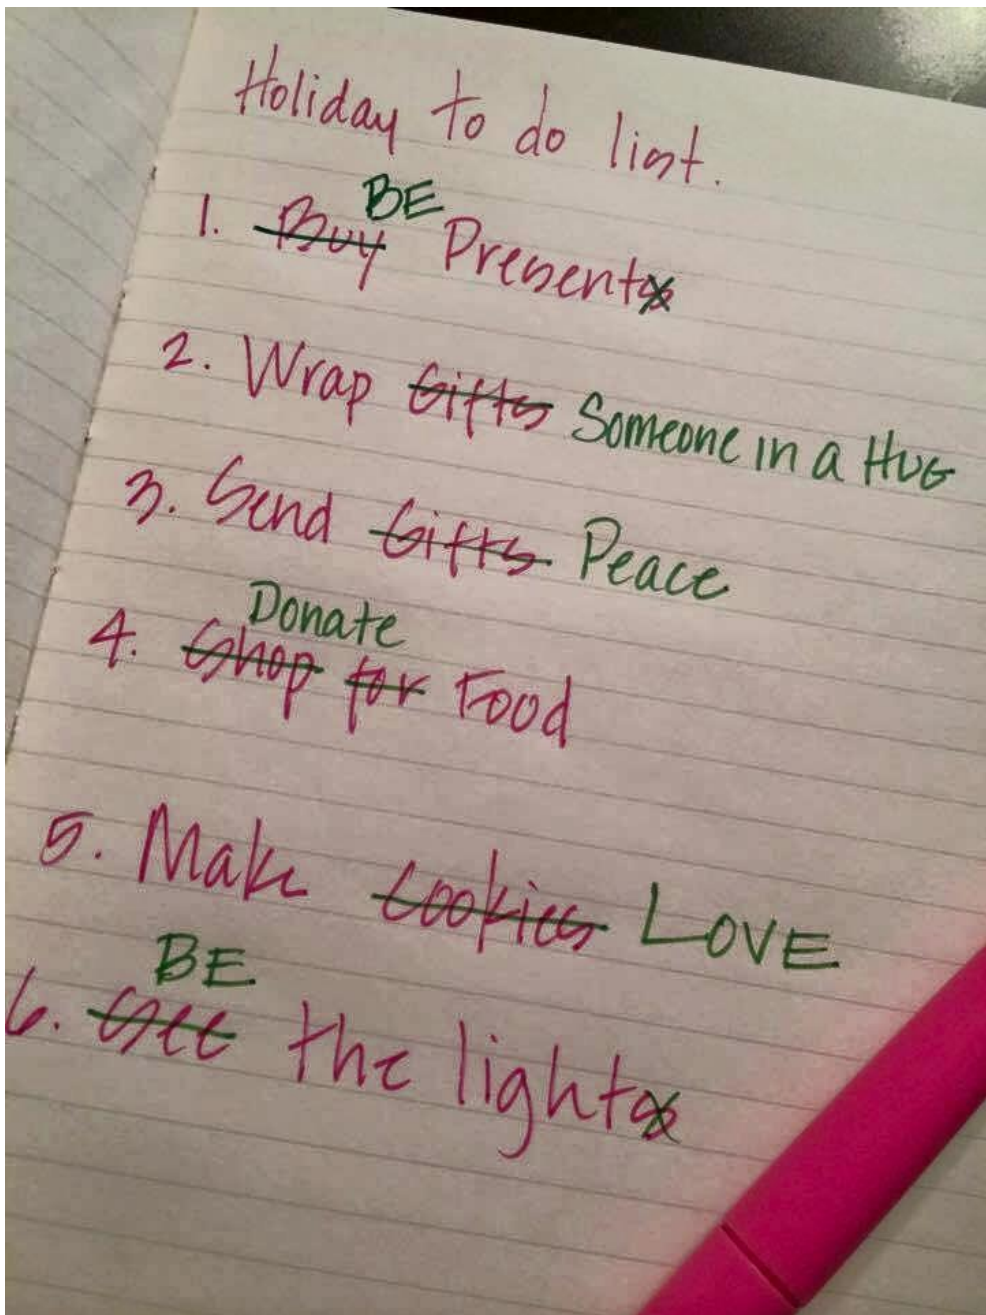 Holiday to do list.
BE
1. Buy Presents
2. Wrap Gifts Someone in a Hug
3. Send Gifts Peace
Donate
4. Shop for Food
5. Make Cookies LOVE
BE
6. See the lights